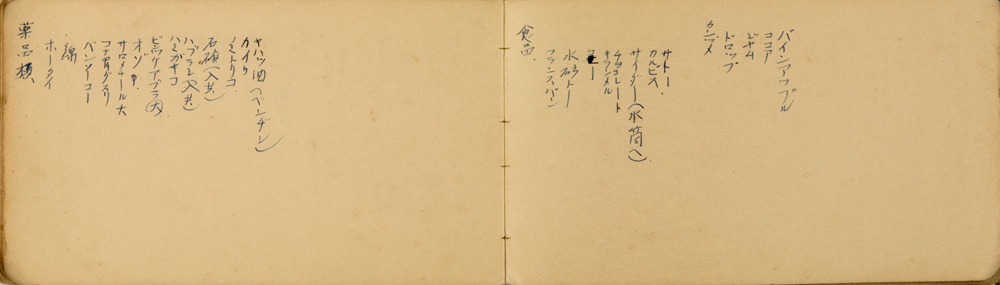 薬品類
ホータイ
綿
バンソーコー
コナ胃グスリ
サロメチール大
オゾ
ビンツケアブラ
ハミガキコ
ハブラシ(入共)
石碩(入共)
ノミトリコ
カイロ
キハツ油(ベンヂン)
食品
フランスパン
氷砂トー
キャラメル
チョコレート
サイダー(水筒へ)
カルピス.
サトー
カンヅメ
ドロップ
ジャム
ココア
パインアップル